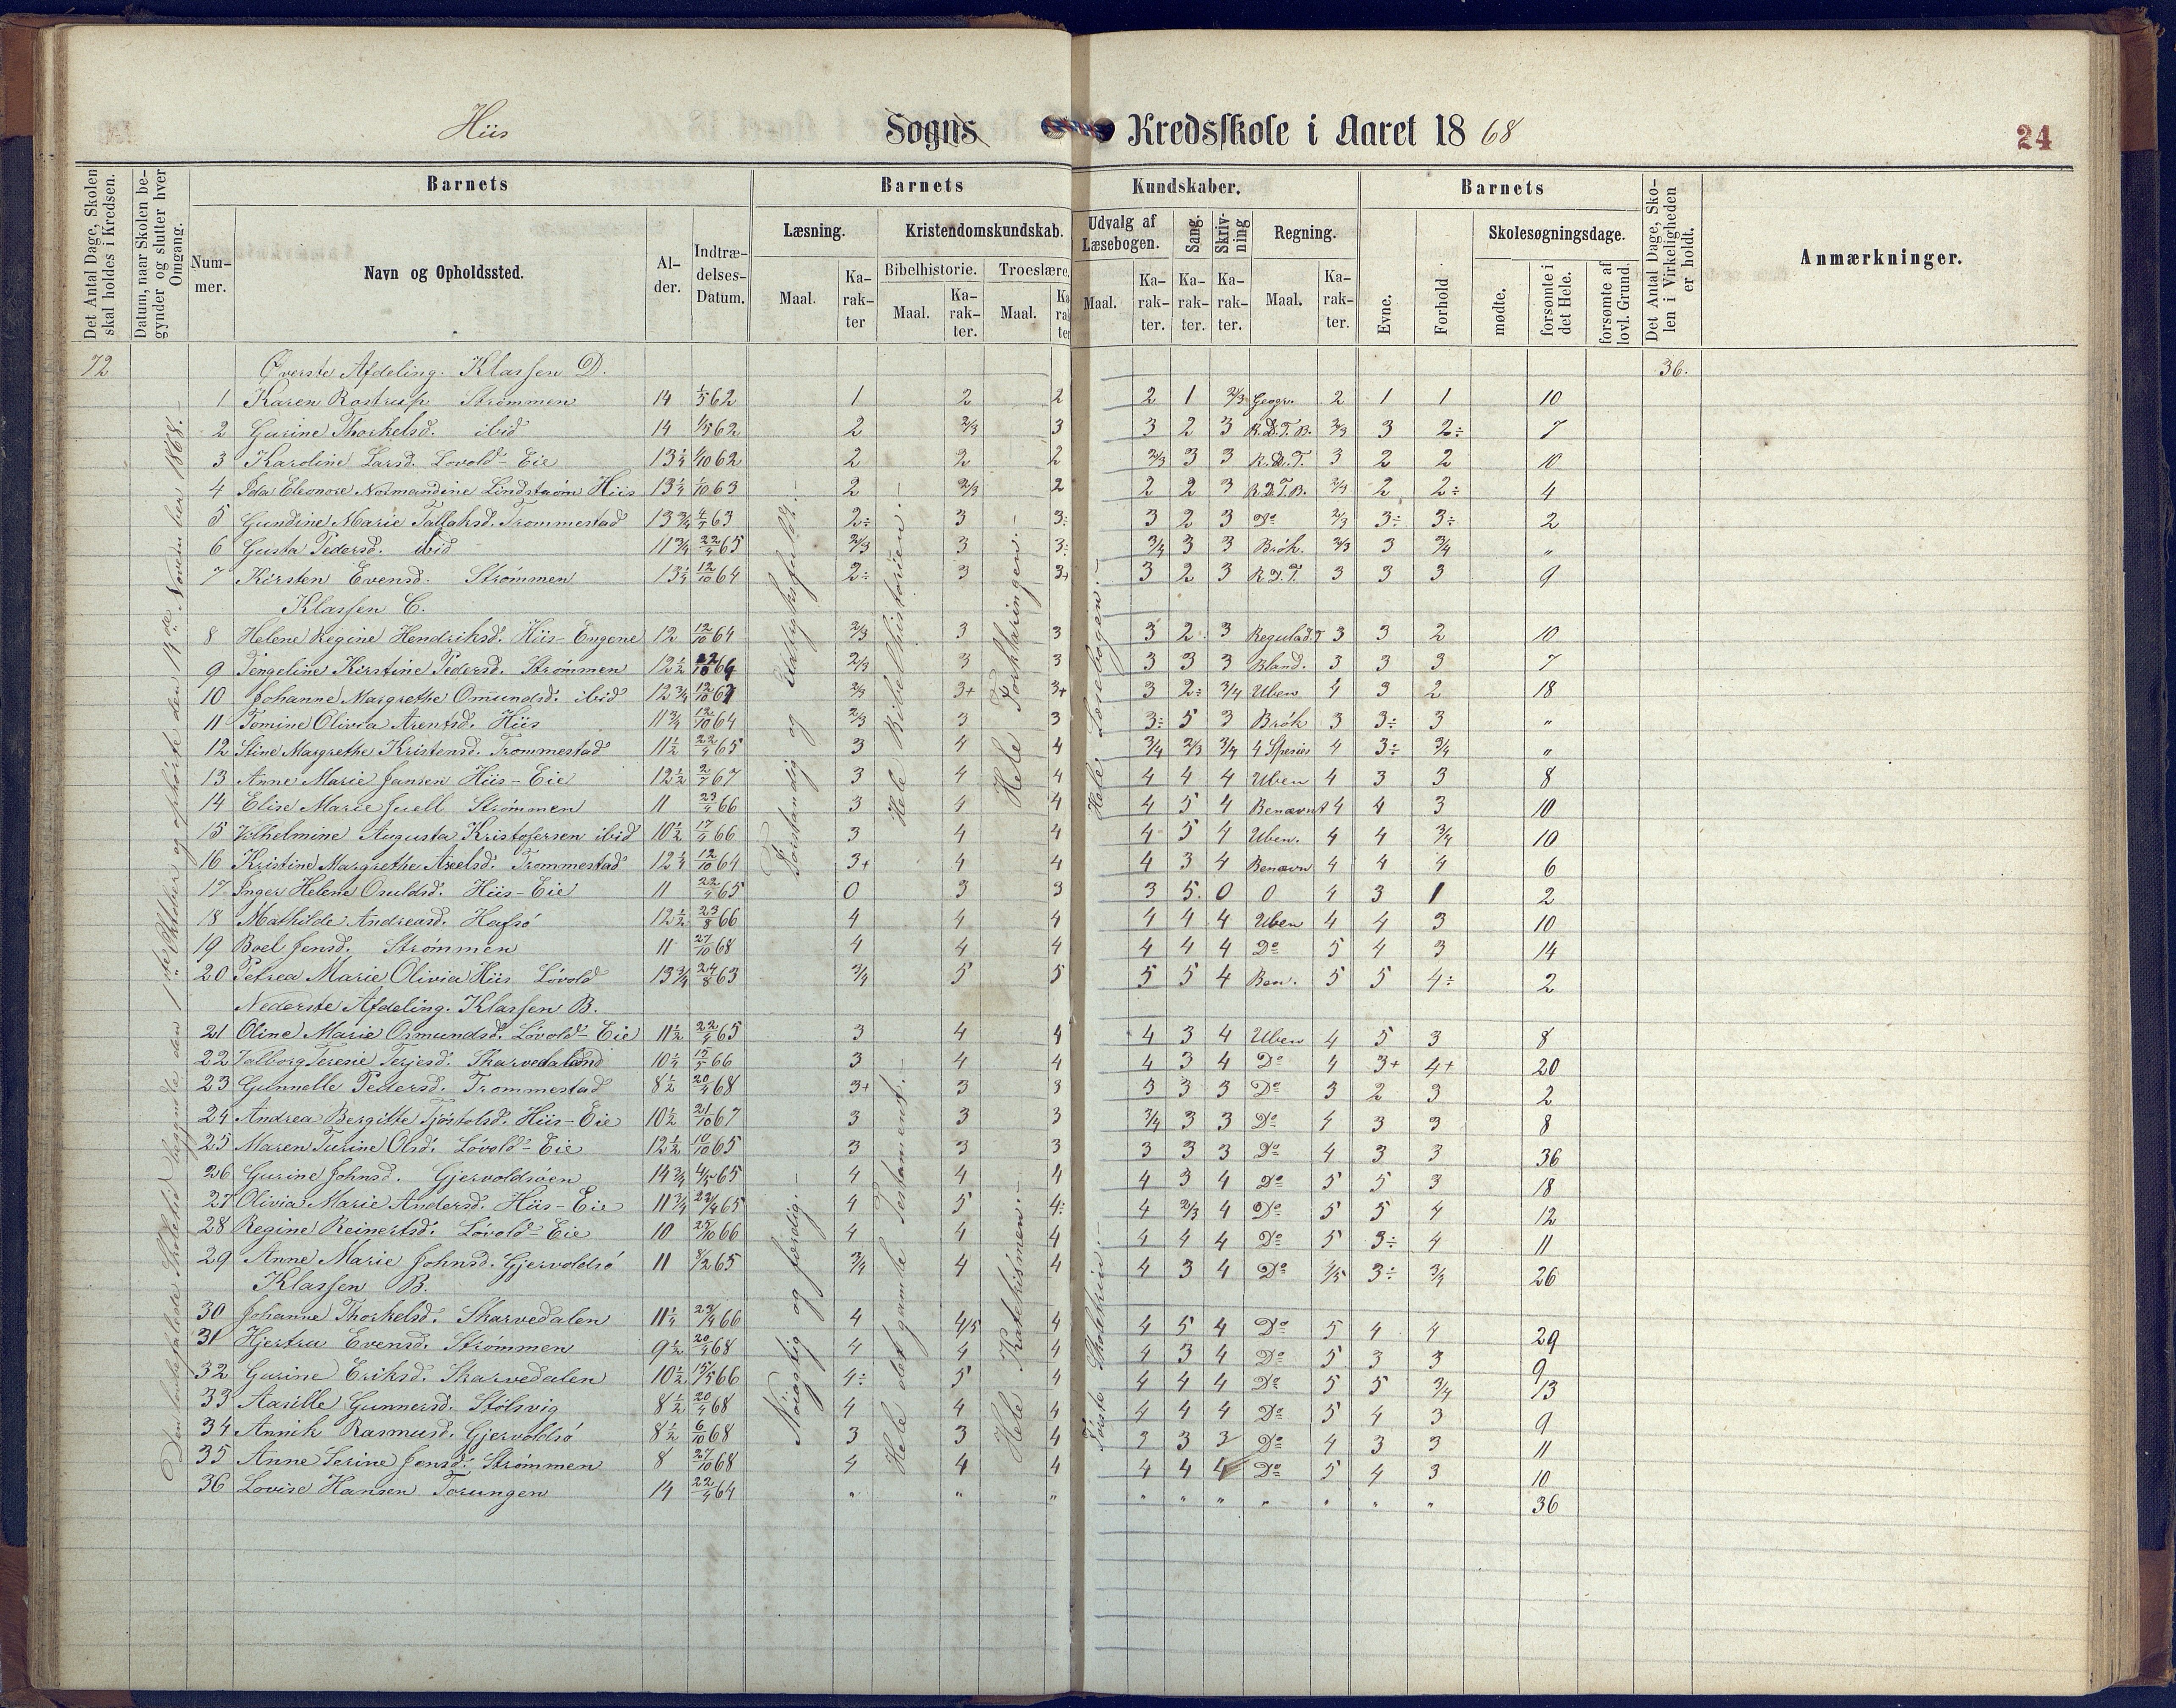 Hiis Sogns Kredsskole i Aaret 1868
24
Det Antal Dage, Skolen skal holdes i Kredsen.
Datum, naar Skolen begynder og slutter hver Omgang.
Barnets
Nummer.
Navn og Opholdssted.
Alder.
Indtrædelses-Datum.
Barnets Kundskaber.
Læsning.
Maal.
Karakter
Kristendomskundskab.
Bibelhistorie.
Maal.
Karakter.
Troeslære.
Maal.
Udvalg af Læsebogen.
Maal.
Karakter.
Sang.
Karakter.
Skrivning
Karakter.
Regning.
Maal.
Karakter.
Barnets
Evne.
Forhold
Skolesøgningsdage.
mødte.
forsømte i det Hele.
forsømte af lovl. Grund.
Det Antal Dage, Skolen i Virkeligheden er holdt.
Anmærkninger.
72 Øverste Afdeling. Klassen D. 36.
1 Karen Rostrup Strømmen 14 1/5 62 1 2 2 2 1 2/3 Geogr. 2 1 1 10
2 Gurine Thorkelsd. ibid 14 1/5 62 2 2/3 3 3 2 3 R.D.T.B. 2/3 3 2÷ 7
3 Karoline Larsd. Lovold-Eie 13 1/4 1/10 62 2 2 2 2/3 3 3 R.D.T. 3 2 2 10
4 Ida Eleonore Normandine Lindstrøm Hiis 13 1/4 1/10 63 2 2/3 2 2 2 3 R.D.T.B. 2/3 2 2÷ 4
5 Gundine Marie Tallaksd. Trommestad 13 3/4 4/5 63 2÷ 3 3÷ 3 2 3 Do 2/3 3÷ 3÷ 2
6 Gusta Pedersd. ibid 11 3/4 22/4 65 2/3 3 3÷ 3/4 3 3 Brøk. 2/3 3 3/4 "
7 Kirsten Evensd. Strømmen 13 1/4 12/10 64 2÷ 3 3+ 3 2 3 R.D.T. 3 3 3 9
Klassen C.
8 Helene Regine Hendriksd. Hiis-Engene 12 12/10 64 2/3 3 3 3 2 3 Regulad. 3 3 2 10
9 Tengeline Kirstine Pedersd. Strømmen 12 1/2 2/3 3 3 3 3 3 Bland. 3 3 3 7
10 Johanne Margrethe Omundsd. ibid 12 3/4 12/10 2/3 3+ 3+ 3 2÷ 3/4 Uben 4 3 2 18
11 Tomine Olivia Arentsd. Hiis 11 3/4 12/10 64 2/3 3 3 3÷ 5 3 Brøk 3 3÷ 3 "
12 Stine Margrethe Kristensd. Trommestad 11 1/2 22/4 65 3 4 4 3/4 2/3 3/4 4 Species 4 3÷ 3/4 "
13 Anne Marie Jansen Hiis-Eie 12 1/2 2/7 67 3 4 4 4 4 4 Uben 4 3 3 8
14 Elise Marie Juell Strømmen 11 23/4 66 3 4 4 4 5 4 Benævnt 4 4 3 10
15 Vilhelmine Augusta Kristofersen ibid 10 1/2 17/4 66 3 4 4 4 5 4 Uben. 4 4 3/4 10
16 Kristine Margrethe Axelsd. Trommestad 12 1/4 12/10 64 3+ 4 4 4 3 4 Benævn 4 4 4 6
17 Inger Helene Osuldsd. Hiis-Eie 11 22/4 65 0 3 3 3 5. 0 0 4 3 1 2
18 Mathilde Andreasd. Hafsø 12 1/2 23/8 66 4 4 4 4 4 4 Uben 4 4 3 10
19 Boel Jensd. Strømmen 11 27/10 68 4 4 4 4 4 4 Do 5 4 3 14
20 Petrea Marie Olivia Hiis Løvold 13 3/4 24/8 63 3/4 5 5 5 5 4 Ben. 5 5 4÷ 2
Nederste Afdeling. Klassen B.
21 Oline Marie Osmundsd. Løvold-Eie 11 1/2 22/4 65 3 4 4 4 3 4 Uben 4 5 3 8
22 Valborg Teresie Terjesd. Skarvedalend 10 1/4 15/5 66 3 4 4 4 3 4 Do 4 3+ 4+ 20
23 Gunnelle Pedersd. Trommestad 8 1/2 20/4 68 3+ 3 3 3 3 3 Do 3 2 3 2
24 Andrea Bergitte Tjøstolsd. Hiis-Eie 10 1/2 21/10 67 3 3 3 3/4 3 3 Do 4 3 3 8
25 Maren Turine Olsd. Løvold-Eie 12 1/2 10/10 65 3 3 3 3 3 3 Do 4 3 3 36
26 Gurine Johnsd. Gjervoldsøen 14 3/4 4/5 65 4 4 4 4 3 4 Do 5 5 3 18
27 Olivia Marie Andersd. Hiis-Eie 11 3/4 22/4 65 4 5 4÷ 4 2/3 4 Do 5 5 4 12
28 Regine Reinertsd. Løvold-Eie 10 25/10 66 4 4 4 4 4 4 Do 5 3÷ 4 11
29 Anne Marie Johnsd. Gjervoldsø 11 8/2 65 3/4 4 4 4 3 4 Do 4/5 3÷ 3/4 26
Klassen B.
30 Johanne Thorkelsd. Skarvedalen 11 1/4 23/4 66 4 4/5 4 4 5 4 Do 5 4 4 29
31 Hjertru Evensd. Strømmen 9 1/2 20/4 68 4 4 4 4 3 4 Do 5 3 3 9
32 Gurine Eriksd. Skarvedalen 10 1/2 15/5 66 4÷ 5 4 4 4 4 Do 5 5 3/4 13
33 Aasille Gunnersd. Stølsvig 8 1/2 20/4 68 4 4 4 4 4 4 Do 5 4 3 9
34 Annik Rasmusd. Gjervoldsø 8 1/2 6/10 68 3 3 4 3 3 3 Do 4 3 3 11
35 Anne Serine Jensd. Strømmen 8 27/10 68 4 4 4 4 4 4 Do 5 4 3 10
36 Lovise Hansen Torungen 14 22/4 64 " " " " " " " " " " 36
Den befalede Skoletid begyndte den 1ste Oktober og ophørte den 14de November 1868.-
Forstandig og Udtryksfuldt.-
Hele Bibelhistorien.-
Hele Forklaringen.-
Hele Læsebogen.-
Nøiagtig og færdig.-
Hele det gamle Testament.
Hele Katekismen.-
Første Skoletrin.-